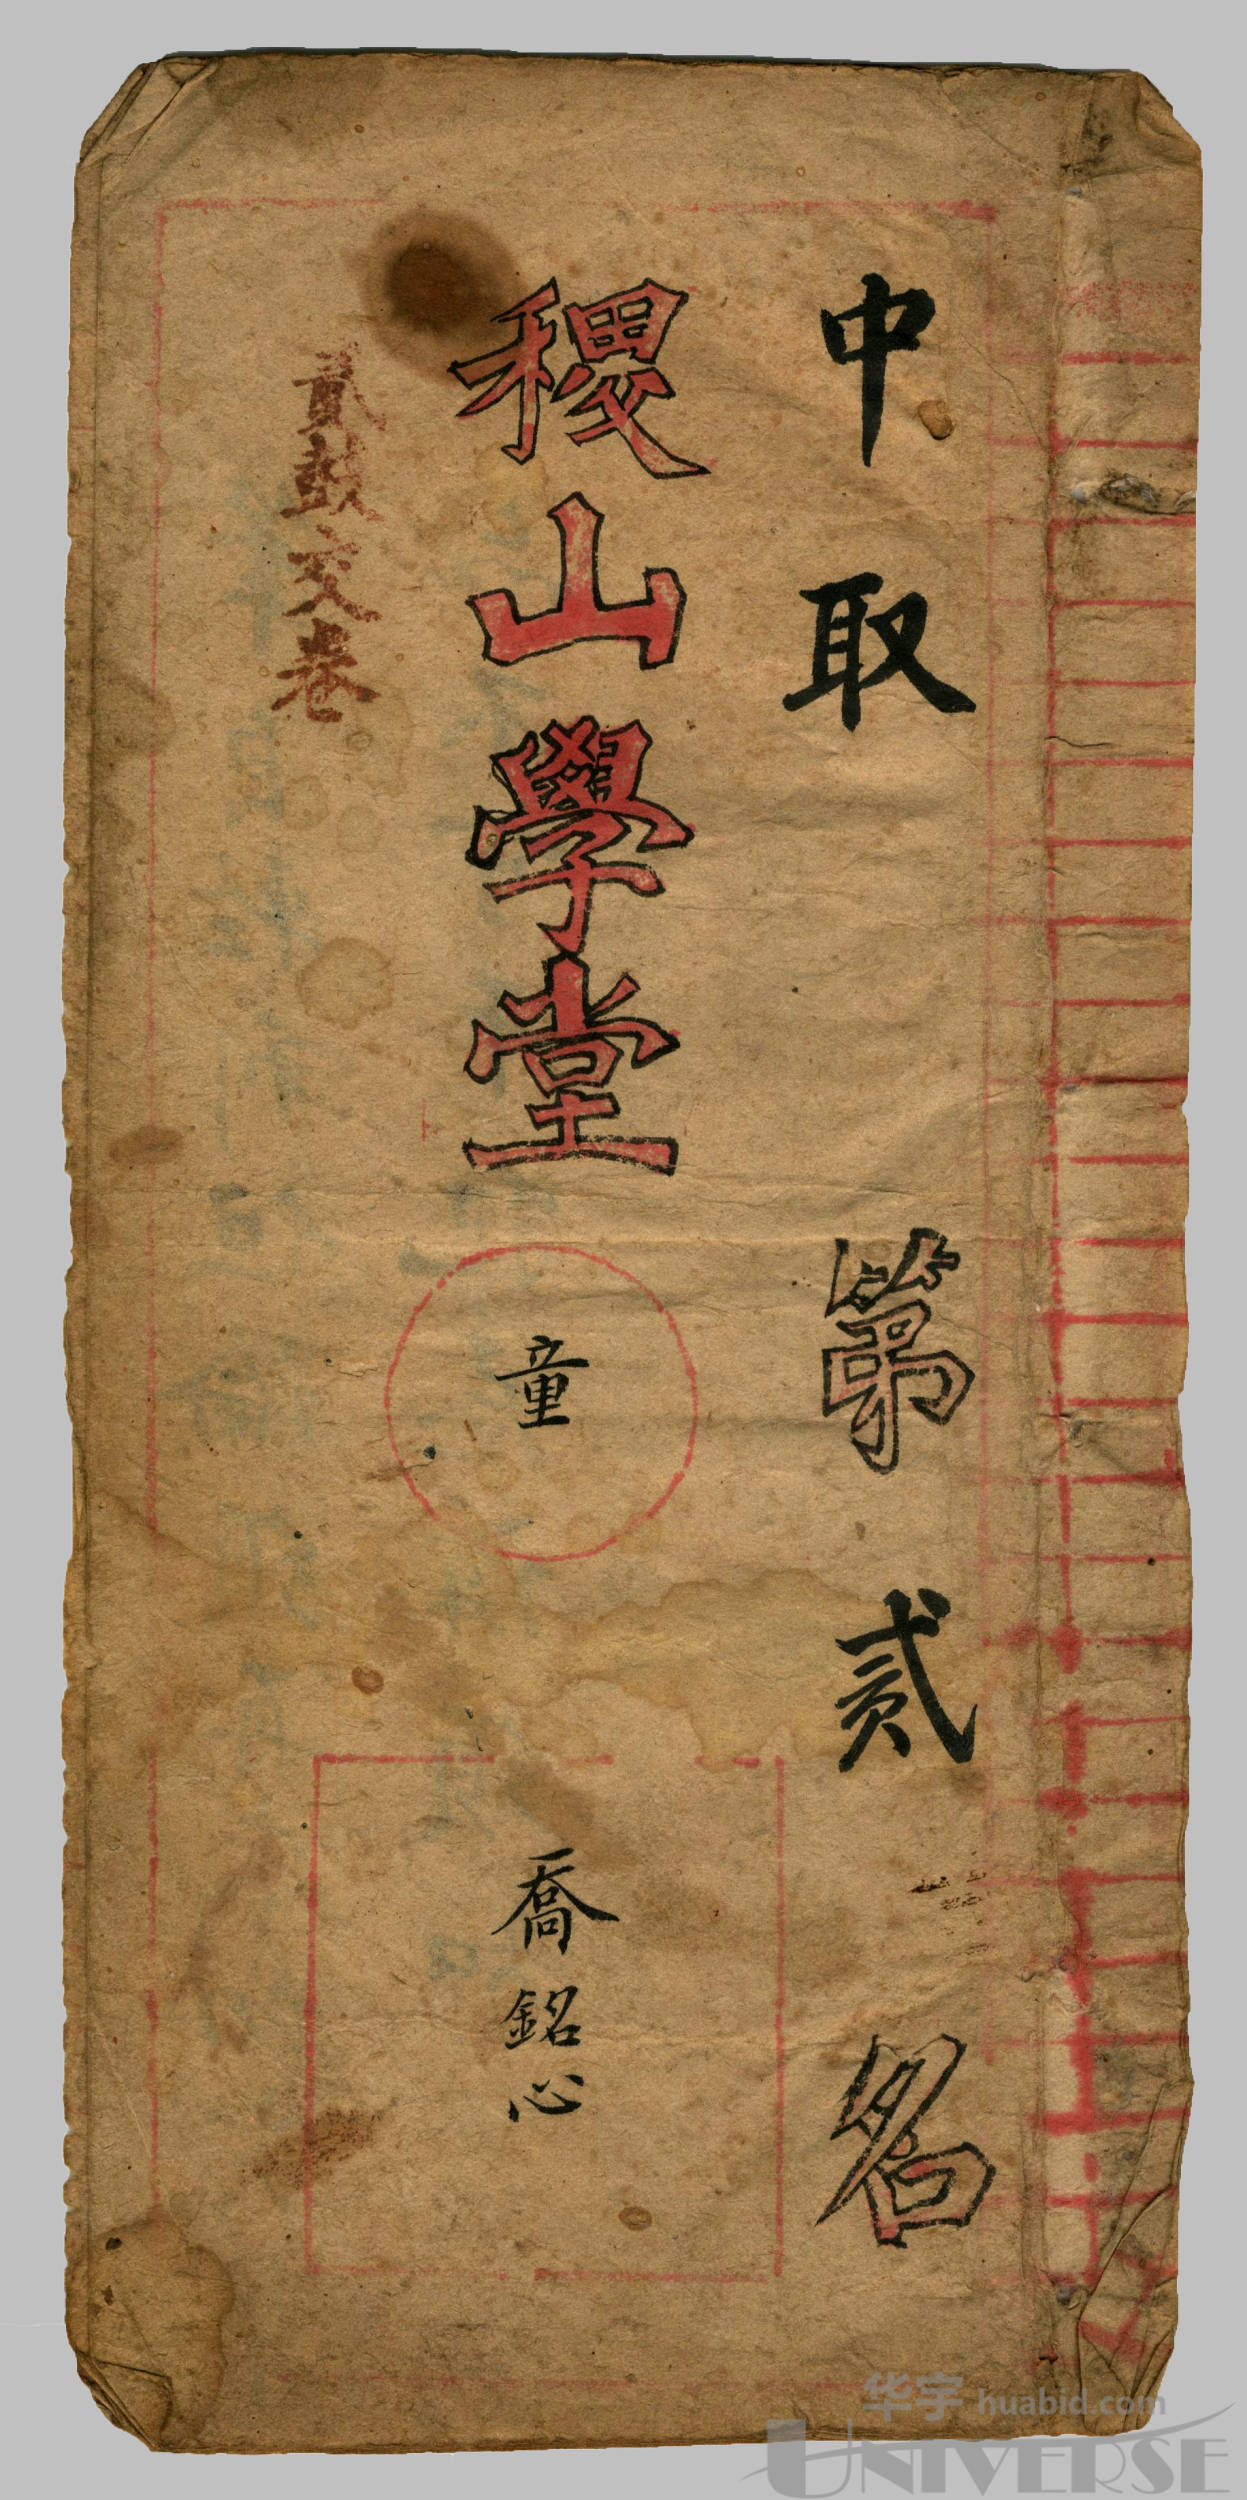 中取第貳名
稷山學堂
童
喬銘心
貳鼓交卷
华宇 huabid.com
UNIVERSE